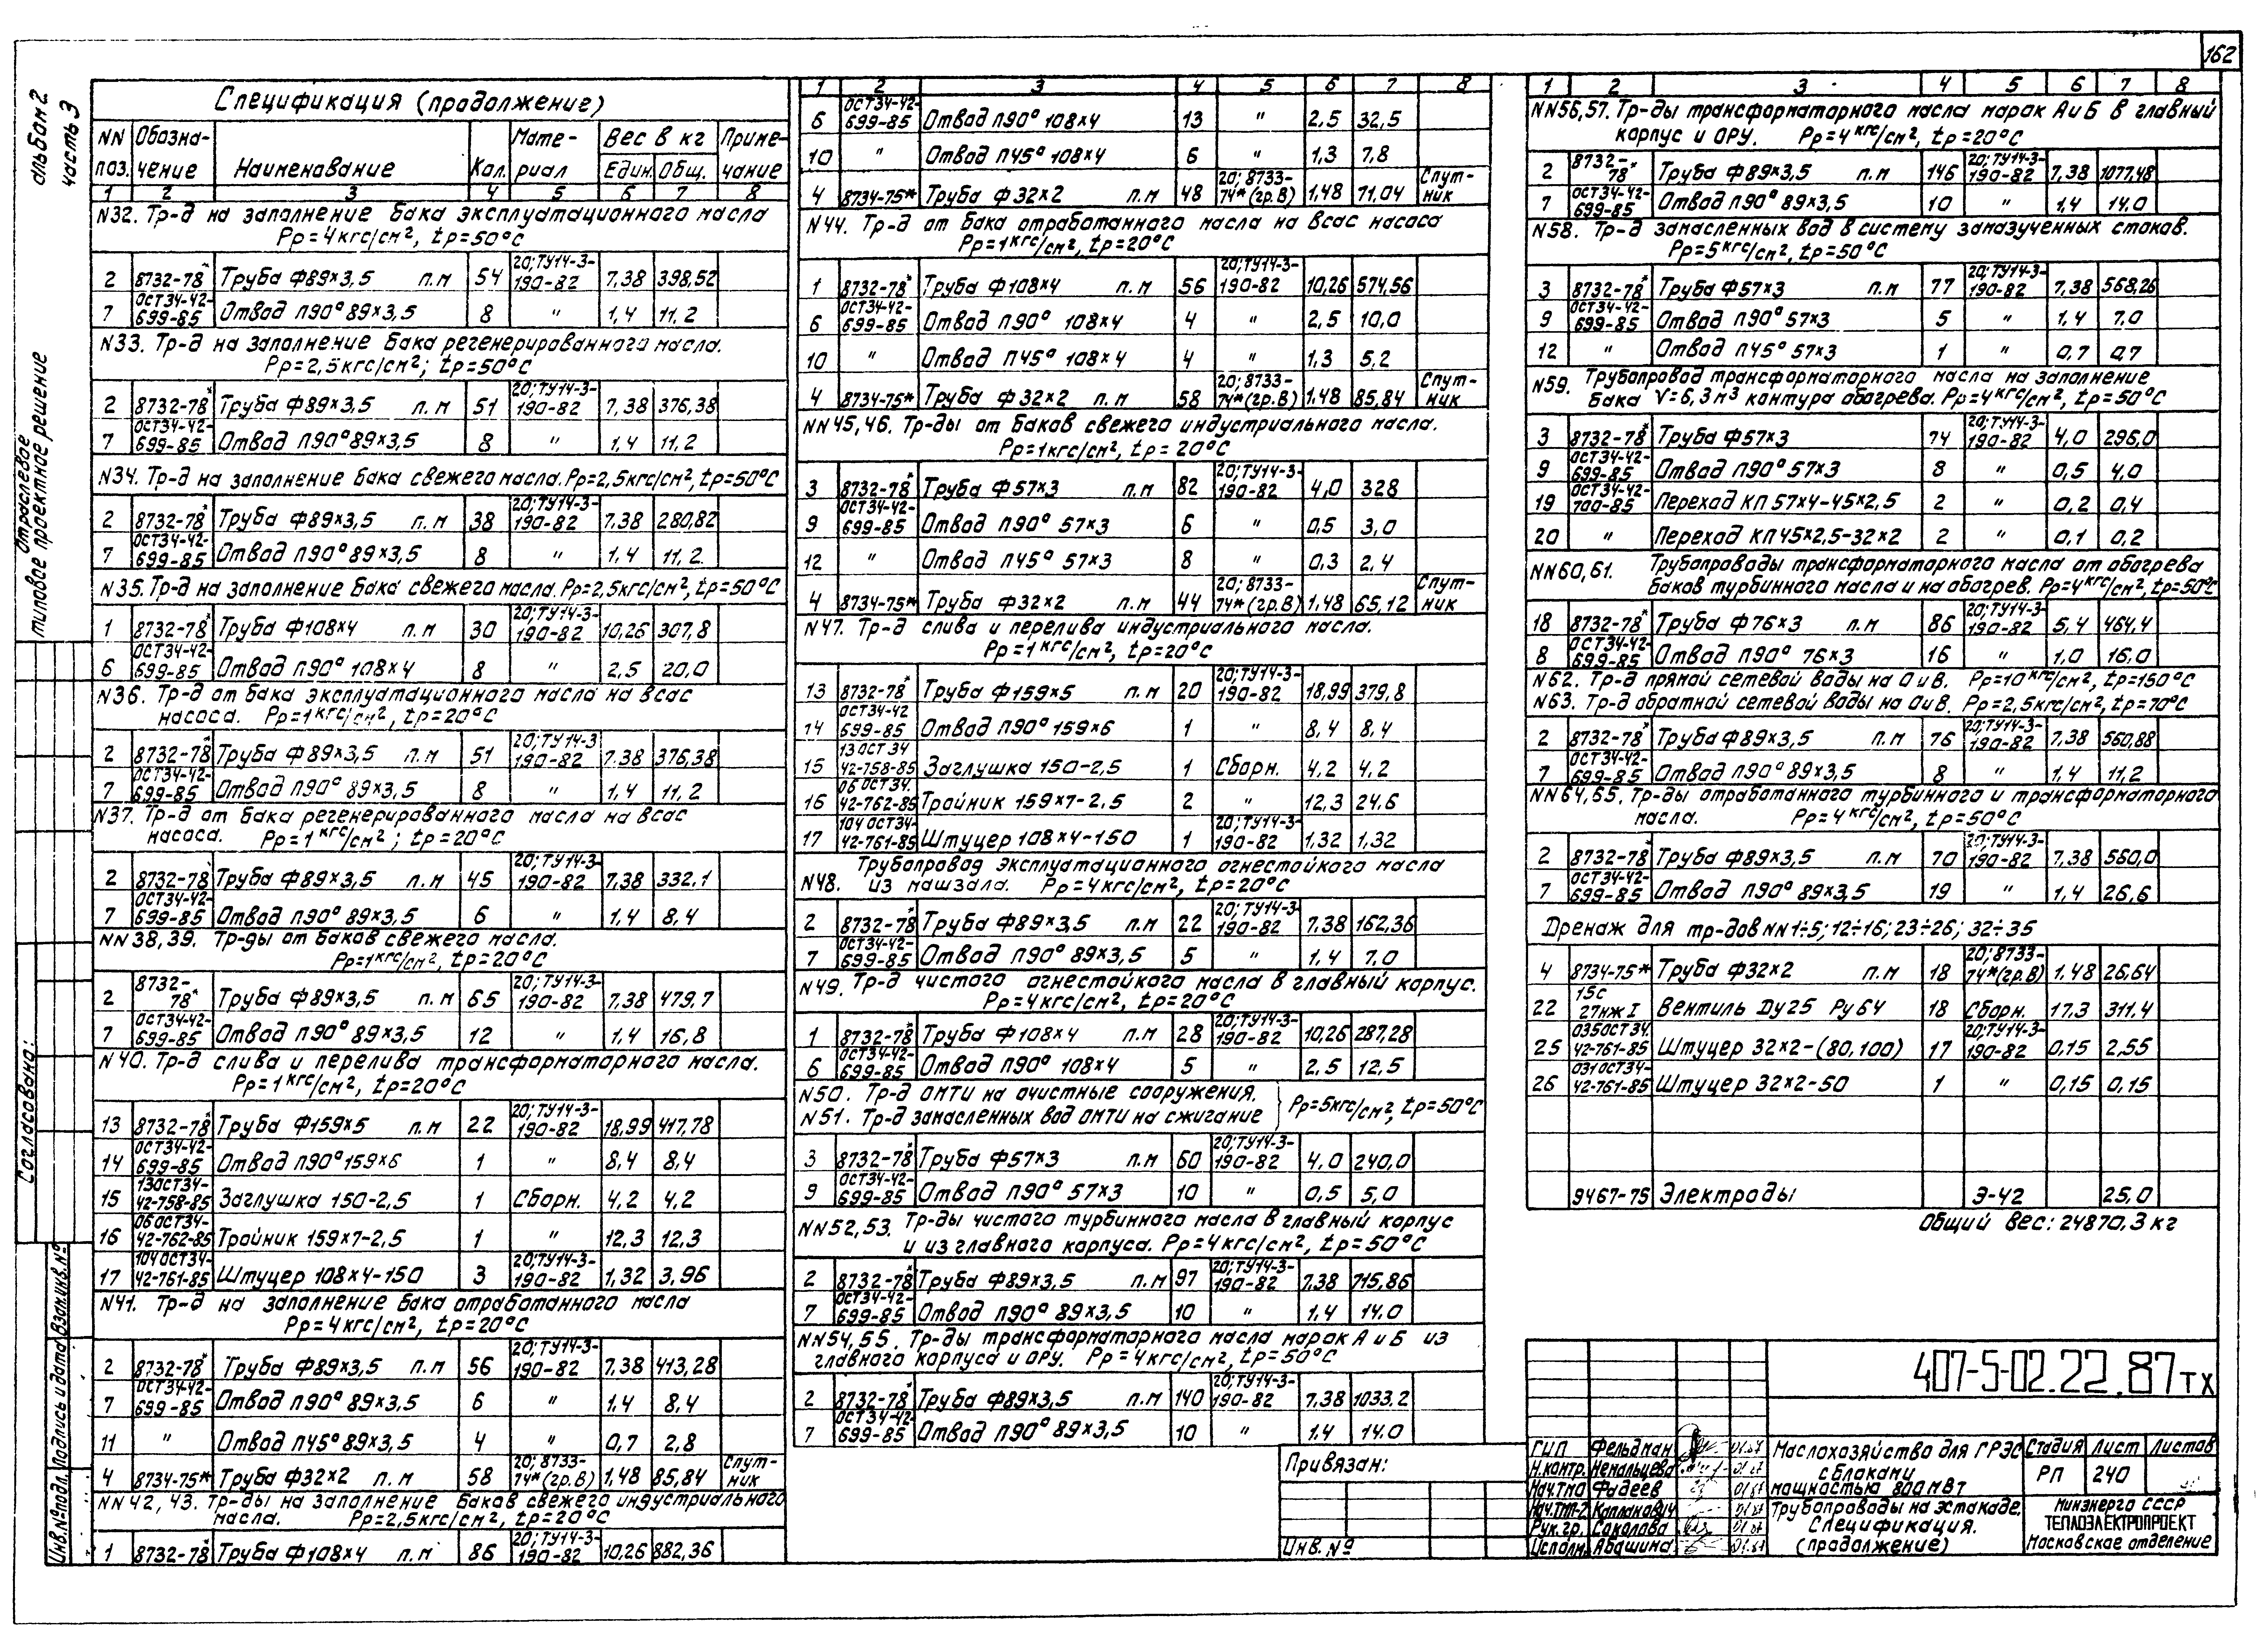 162
альбом 2
часть 3
Отраслевое
типовое проектное решение
Согласовано:
Инв.№подл. Подпись и дата Взам.инв.№
Спецификация (продолжение)
NN поз. Обозна-чение Наименование Кол. Мате-риал Вес в кг Един. Общ. Приме-чание
1 2 3 4 5 6 7 8
N32. Тр-д на заполнение бака эксплуатационного масла
Рр=4кгс/см², tр=50°С
2 8732-78* Труба Ф89×3,5 п.м 54 20; ТУ14-3-190-82 7,38 398,52
7 ОСТ34-42-699-85 Отвод П90° 89×3,5 8 " 1,4 11,2
N33. Тр-д на заполнение бака регенерированного масла.
Рр=2,5кгс/см²; tр=50°С
2 8732-78* Труба Ф89×3,5 п.м 51 20; ТУ14-3-190-82 7,38 376,38
7 ОСТ34-42-699-85 Отвод П90° 89×3,5 8 " 1,4 11,2
N34. Тр-д на заполнение бака свежего масла. Рр=2,5кгс/см², tр=50°С
2 8732-78* Труба Ф89×3,5 п.м 38 20; ТУ14-3-190-82 7,38 280,82
7 ОСТ34-42-699-85 Отвод П90° 89×3,5 8 " 1,4 11,2
N35. Тр-д на заполнение бака свежего масла. Рр=2,5кгс/см², tр=50°С
1 8732-78* Труба Ф108×4 п.м 30 20; ТУ14-3-190-82 10,26 307,8
6 ОСТ34-42-699-85 Отвод П90° 108×4 8 " 2,5 20,0
N36. Тр-д от бака эксплуатационного масла на всас
насоса. Рр=1кгс/см², tр=20°С
2 8732-78* Труба Ф89×3,5 п.м 51 20; ТУ14-3-190-82 7,38 376,38
7 ОСТ34-42-699-85 Отвод П90° 89×3,5 8 " 1,4 11,2
N37. Тр-д от бака регенерированного масла на всас
насоса. Рр=1кгс/см²; tр=20°С
2 8732-78 Труба Ф89×3,5 п.м 45 20; ТУ14-3-190-82 7,38 332,1
7 ОСТ34-42-699-85 Отвод П90° 89×3,5 6 " 1,4 8,4
NN38,39. Тр-ды от баков свежего масла.
Рр=1кгс/см², tр=20°С
2 8732-78* Труба Ф89×3,5 п.м 65 20; ТУ14-3-190-82 7,38 479,7
7 ОСТ34-42-699-85 Отвод П90° 89×3,5 12 " 1,4 16,8
N40. Тр-д слива и перелива трансформаторного масла.
Рр=1кгс/см², tр=20°С
13 8732-78* Труба Ф159×5 п.м 22 20; ТУ14-3-190-82 18,99 417,78
14 ОСТ34-42-699-85 Отвод П90° 159×6 1 " 8,4 8,4
15 13ОСТ34-42-758-85 Заглушка 150-2,5 1 Сборн. 4,2 4,2
16 06ОСТ34-42-762-85 Тройник 159×7-2,5 1 " 12,3 12,3
17 104ОСТ34-42-761-85 Штуцер 108×4-150 3 20; ТУ14-3-190-82 1,32 3,96
N41. Тр-д на заполнение бака отработанного масла
Рр=4кгс/см², tр=20°С
2 8732-78* Труба Ф89×3,5 п.м 56 20; ТУ14-3-190-82 7,38 413,28
7 ОСТ34-42-699-85 Отвод П90° 89×3,5 6 " 1,4 8,4
11 " Отвод П45° 89×3,5 4 " 0,7 2,8
4 8734-75* Труба Ф32×2 п.м 58 20; 8733-74*(гр.В) 1,48 85,84 Спут-ник
NN42,43. Тр-ды на заполнение баков свежего индустриального
масла. Рр=2,5кгс/см², tр=20°С
1 8732-78* Труба Ф108×4 п.м 86 20; ТУ14-3-190-82 10,26 882,36
1 2 3 4 5 6 7 8
6 ОСТ34-42-699-85 Отвод П90° 108×4 13 " 2,5 32,5
10 " Отвод П45° 108×4 6 " 1,3 7,8
4 8734-75* Труба Ф32×2 п.м 48 20; 8733-74*(гр.В) 1,48 71,04 Спут-ник
N44. Тр-д от бака отработанного масла на всас насоса
Рр=1кгс/см², tр=20°С
1 8732-78* Труба Ф108×4 п.м 56 20; ТУ14-3-190-82 10,26 574,56
6 ОСТ34-42-699-85 Отвод П90° 108×4 4 " 2,5 10,0
10 " Отвод П45° 108×4 4 " 1,3 5,2
4 8734-75* Труба Ф32×2 п.м 58 20; 8733-74*(гр.В) 1,48 85,84 Спут-ник
NN45,46. Тр-ды от баков свежего индустриального масла.
Рр=1кгс/см², tр=20°С
3 8732-78* Труба Ф57×3 п.м 82 20; ТУ14-3-190-82 4,0 328
9 ОСТ34-42-699-85 Отвод П90° 57×3 6 " 0,5 3,0
12 " Отвод П45° 57×3 8 " 0,3 2,4
4 8734-75* Труба Ф32×2 п.м 44 20; 8733-74*(гр.В) 1,48 65,12 Спут-ник
N47. Тр-д слива и перелива индустриального масла.
Рр=1кгс/см², tр=20°С
13 8732-78* Труба Ф159×5 п.м 20 20; ТУ14-3-190-82 18,99 379,8
14 ОСТ34-42 699-85 Отвод П90° 159×6 1 " 8,4 8,4
15 13ОСТ34 42-758-85 Заглушка 150-2,5 1 Сборн. 4,2 4,2
16 06ОСТ34. 42-762-85 Тройник 159×7-2,5 2 " 12,3 24,6
17 104ОСТ34-42-761-85 Штуцер 108×4-150 1 20; ТУ14-3-190-82 1,32 1,32
N48. Трубопровод эксплуатационного огнестойкого масла
из машзала. Рр=4кгс/см², tр=20°С
2 8732-78* Труба Ф89×3,5 п.м 22 20; ТУ14-3-190-82 7,38 162,36
7 ОСТ34-42-699-85 Отвод П90° 89×3,5 5 " 1,4 7,0
N49. Тр-д чистого огнестойкого масла в главный корпус.
Рр=4кгс/см², tр=20°С
1 8732-78* Труба Ф108×4 п.м 28 20; ТУ14-3-190-82 10,26 287,28
6 ОСТ34-42-699-85 Отвод П90° 108×4 5 " 2,5 12,5
N50. Тр-д ОМТИ на очистные сооружения.
N51. Тр-д замасленных вод ОМТИ на сжигание Рр=5кгс/см², tр=50°С
3 8732-78* Труба Ф57×3 п.м 60 20; ТУ14-3-190-82 4,0 240,0
9 ОСТ34-42-699-85 Отвод П90° 57×3 10 " 0,5 5,0
NN52,53. Тр-ды чистого турбинного масла в главный корпус
и из главного корпуса. Рр=4кгс/см², tр=50°С
2 8732-78* Труба Ф89×3,5 п.м 97 20; ТУ14-3-190-82 7,38 715,86
7 ОСТ34-42-699-85 Отвод П90° 89×3,5 10 " 1,4 14,0
NN54,55. Тр-ды трансформаторного масла марок А и Б из
главного корпуса и ОРУ. Рр=4кгс/см², tр=50°С
2 8732-78* Труба Ф89×3,5 п.м 140 20; ТУ14-3-190-82 7,38 1033,2
7 ОСТ34-42-699-85 Отвод П90° 89×3,5 10 " 1,4 14,0
Привязан:
Инв.№
1 2 3 4 5 6 7 8
NN56,57. Тр-ды трансформаторного масла марок А и Б в главный
корпус и ОРУ. Рр=4кгс/см², tр=20°С
2 8732-78* Труба Ф89×3,5 п.м 146 20; ТУ14-3-190-82 7,38 1077,48
7 ОСТ34-42-699-85 Отвод П90° 89×3,5 10 " 1,4 14,0
N58. Тр-д замасленных вод в систему замазученных стоков.
Рр=5кгс/см², tр=50°С
3 8732-78* Труба Ф57×3 п.м 77 20; ТУ14-3-190-82 7,38 568,26
9 ОСТ34-42-699-85 Отвод П90° 57×3 5 " 1,4 7,0
12 " Отвод П45° 57×3 1 " 0,7 0,7
N59. Трубопровод трансформаторного масла на заполнение
бака V=6,3м³ контура обогрева. Рр=4кгс/см², tр=50°С
3 8732-78* Труба Ф57×3 74 20; ТУ14-3-190-82 4,0 296,0
9 ОСТ34-42-699-85 Отвод П90° 57×3 8 " 0,5 4,0
19 ОСТ34-42-700-85 Переход КП 57×4-45×2,5 2 " 0,2 0,4
20 " Переход КП45×2,5-32×2 2 " 0,1 0,2
NN60,61. Трубопроводы трансформаторного масла от обогрева
баков турбинного масла и на обогрев. Рр=4кгс/см², tр=50°С
18 8732-78* Труба Ф76×3 п.м 86 20; ТУ14-3-190-82 5,4 464,4
8 ОСТ34-42-699-85 Отвод П90° 76×3 16 " 1,0 16,0
N62. Тр-д прямой сетевой воды на ОиВ. Рр=10кгс/см², tр=150°С
N63. Тр-д обратной сетевой воды на ОиВ. Рр=2,5кгс/см², tр=70°С
2 8732-78* Труба Ф89×3,5 п.м 76 20; ТУ14-3-190-82 7,38 560,88
7 ОСТ34-42-699-85 Отвод П90° 89×3,5 8 " 1,4 11,2
NN64,65. Тр-ды отработанного турбинного и трансформаторного
масла. Рр=4кгс/см², tр=50°С
2 8732-78* Труба Ф89×3,5 п.м 70 20; ТУ14-3-190-82 7,38 560,0
7 ОСТ34-42-699-85 Отвод П90° 89×3,5 19 " 1,4 26,6
Дренаж для тр-дов NN1÷5; 12÷16; 23÷26; 32÷35
4 8734-75* Труба Ф32×2 п.м 18 20; 8733-74*(гр.В) 1,48 26,64
22 15с 27нж1 Вентиль Ду25 Ру64 18 Сборн. 17,3 311,4
25 035ОСТ34. 42-761-85 Штуцер 32×2-(80,100) 17 20; ТУ14-3-190-82 0,15 2,55
26 031ОСТ34-42-761-85 Штуцер 32×2-50 1 " 0,15 0,15
9467-75 Электроды Э-42 25,0
Общий вес: 24870,3 кг
407-5-02.22.87 ТХ
ГИП Фельдман 01.87
Н.контр. Немальцева 01.87
Нач.ТМО Фадеев 01.87
Нач.ТМП-2 Капланович 01.87
Рук.гр. Соколова 01.87
Исполн. Абашина 01.87
Маслохозяйство для ГРЭС
с блоками
мощностью 800 мВт
Стадия Лист Листов
РП 240
Трубопроводы на эстакаде.
Спецификация.
(продолжение)
Минэнерго СССР
ТЕПЛОЭЛЕКТРОПРОЕКТ
Московское отделение